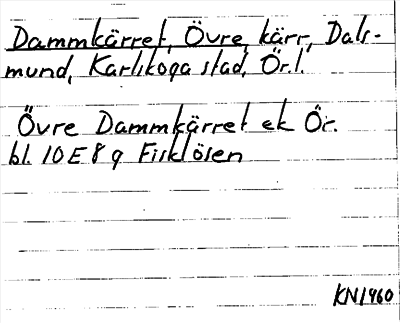 Dammkärret, Övre, kärr, Dals-
mund, Karlskoga stad, Ör.l.
Övre Dammkärret ek Ör.
bl. 10E8g Fisklösen
KN1960